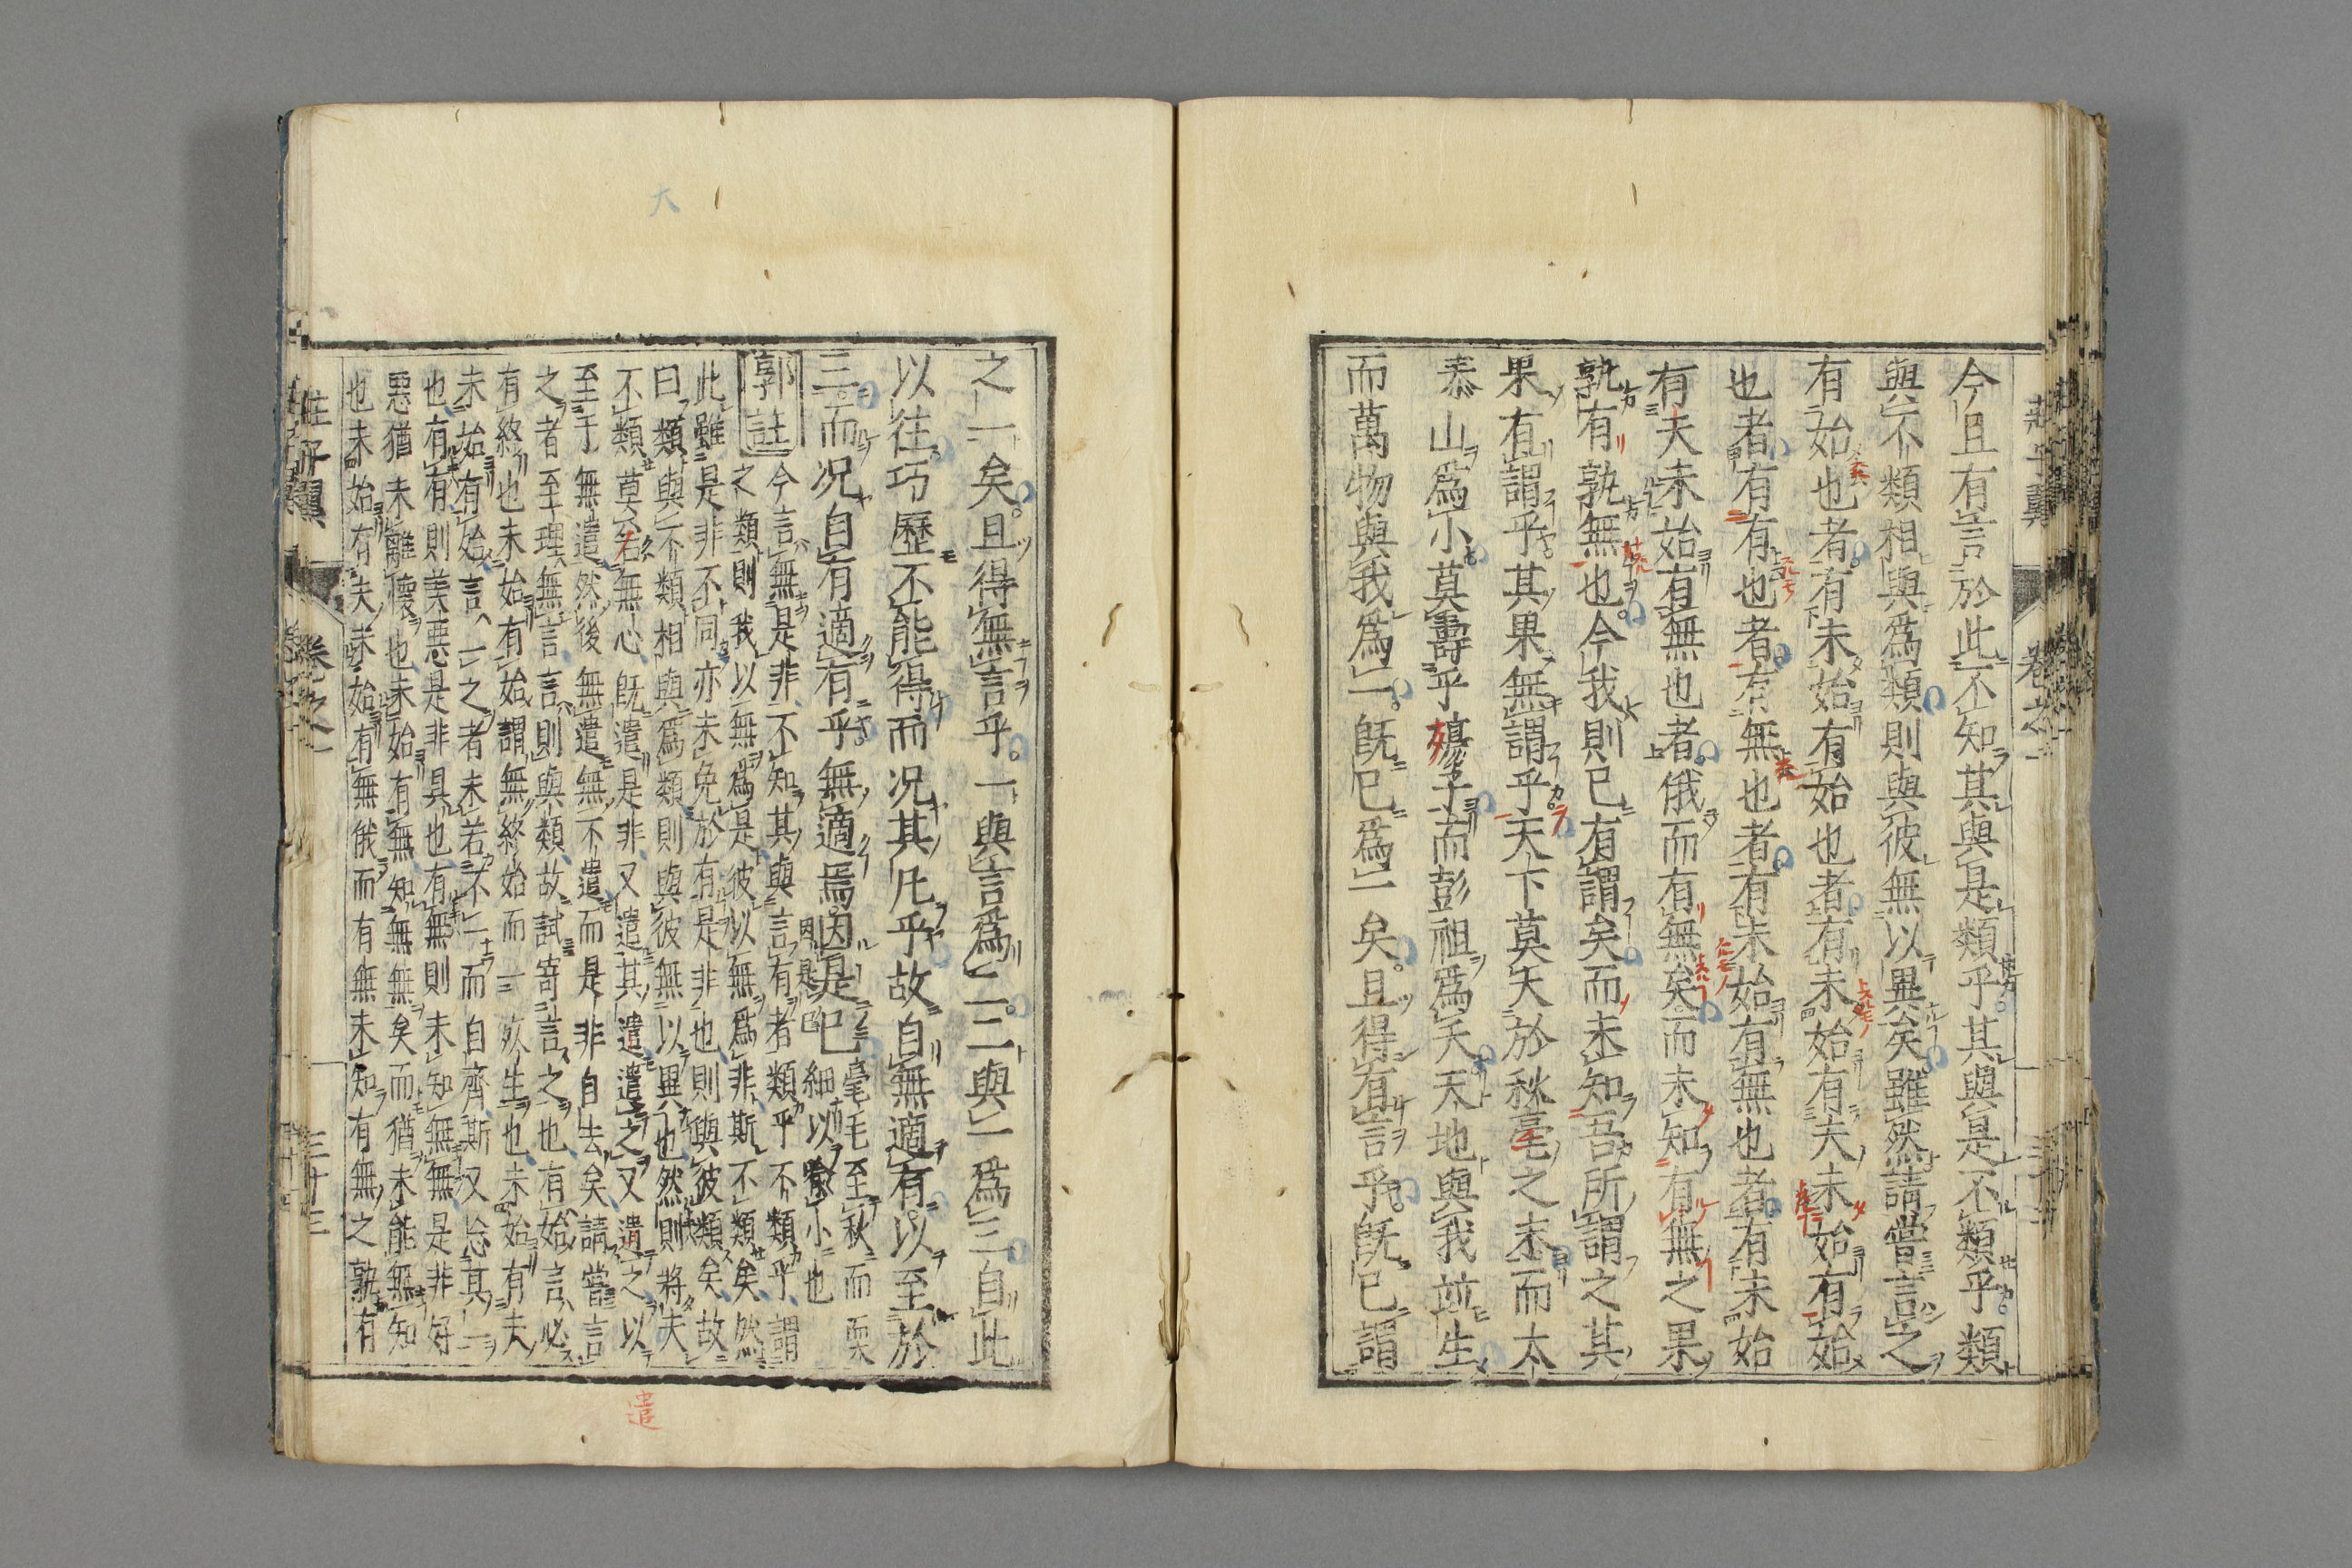 今且有言於此不知其與是類乎其與是不類乎類
與不類相與爲類則與彼無以異矣雖然請嘗言之
有始也者有未始有始也者有未始有夫未始有始
也者有有也者有無也者有未始有無也者有未始
有夫未始有無也者俄而有無矣而未知有無之果
孰有孰無也今我則已有謂矣而未知吾所謂之其
果有謂乎其果無謂乎天下莫大於秋毫之末而太
泰山爲小莫壽乎殤子而彭祖爲夭天地與我竝生
而萬物與我爲一既已爲一矣且得有言乎既已謂
莊子翼 卷之一
之一矣且得無言乎一與言爲二二與一爲三自此
以往巧歷不能得而况其凡乎故自無適有以至於
三而况自有適有乎無適焉因是已
毫毛至秋而耎
細以喻小也
郭註
今言無是非不知其與言有者類乎不類乎謂
之類則我以無爲是彼以無爲非斯不類矣然
此雖是非不同亦未免於有是非也則與彼類矣故
曰類與不類相與爲類則與彼無以異也然則將夫
不類莫若無心既遣是非又遣其遣遣之又遣之以
至于無遣然後無遣無不遣而是非自去矣請嘗言
之者至理無言言則與類故試寄言之也有始言必
有終也未始有始謂無終始而一死生也未始有夫
未始有始言一之者未若不一而自齊斯又忘其一
也有有則美惡是非具也有無則未知無無是非好
惡猶未離懷也未始有無知無無矣而猶未能無知
也未始有夫未始有無俄而有無未知有無之孰有
莊子翼 卷之一 三十三
大
遣